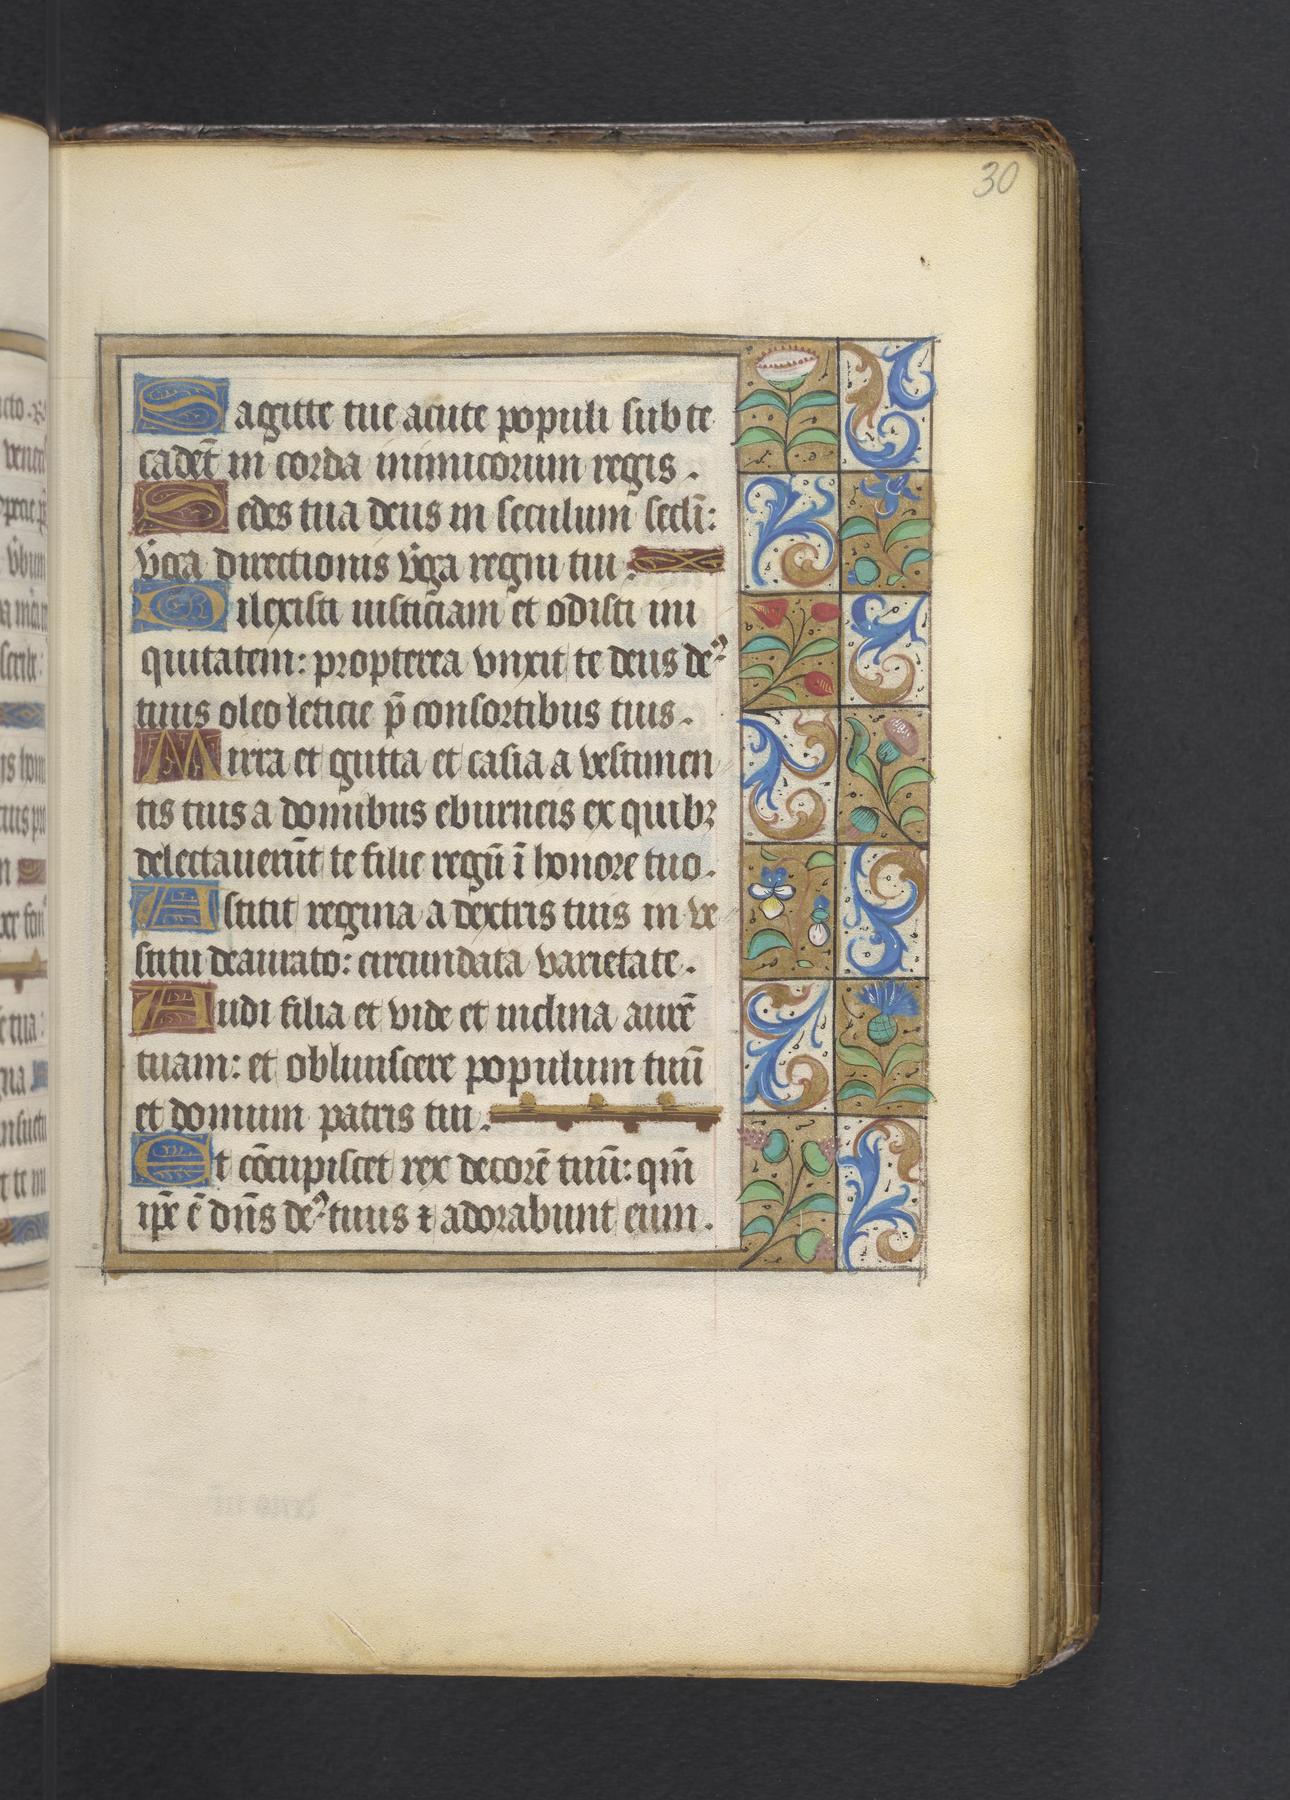 30
Sagitte tue acute populi sub te
cadēt in corda inimicorum regis.
Sedes tua deus in seculum secłi:
v̄ga directionis v̄ga regni tui.
Dilexisti iusticiam et odisti ini
quitatem: propterea vnxit te deus deꝰ
tuus oleo leticie p̄ consortibus tuis.
Mirra et gutta et casia a vestimen
tis tuis a domibus eburneis ex quibꝫ
delectauerūt te filie regū ī honore tuo.
Astitit regina a dextris tuis in ve
stitu deaurato: circundata varietate.
Audi filia et vide et inclina aurē
tuam: et obliuiscere populum tuū
et domum patris tui.
Et cōcupiscet rex decorē tuū: qm̄
ip̄e ē dn̄s deꝰ tuus ⁊ adorabunt eum.